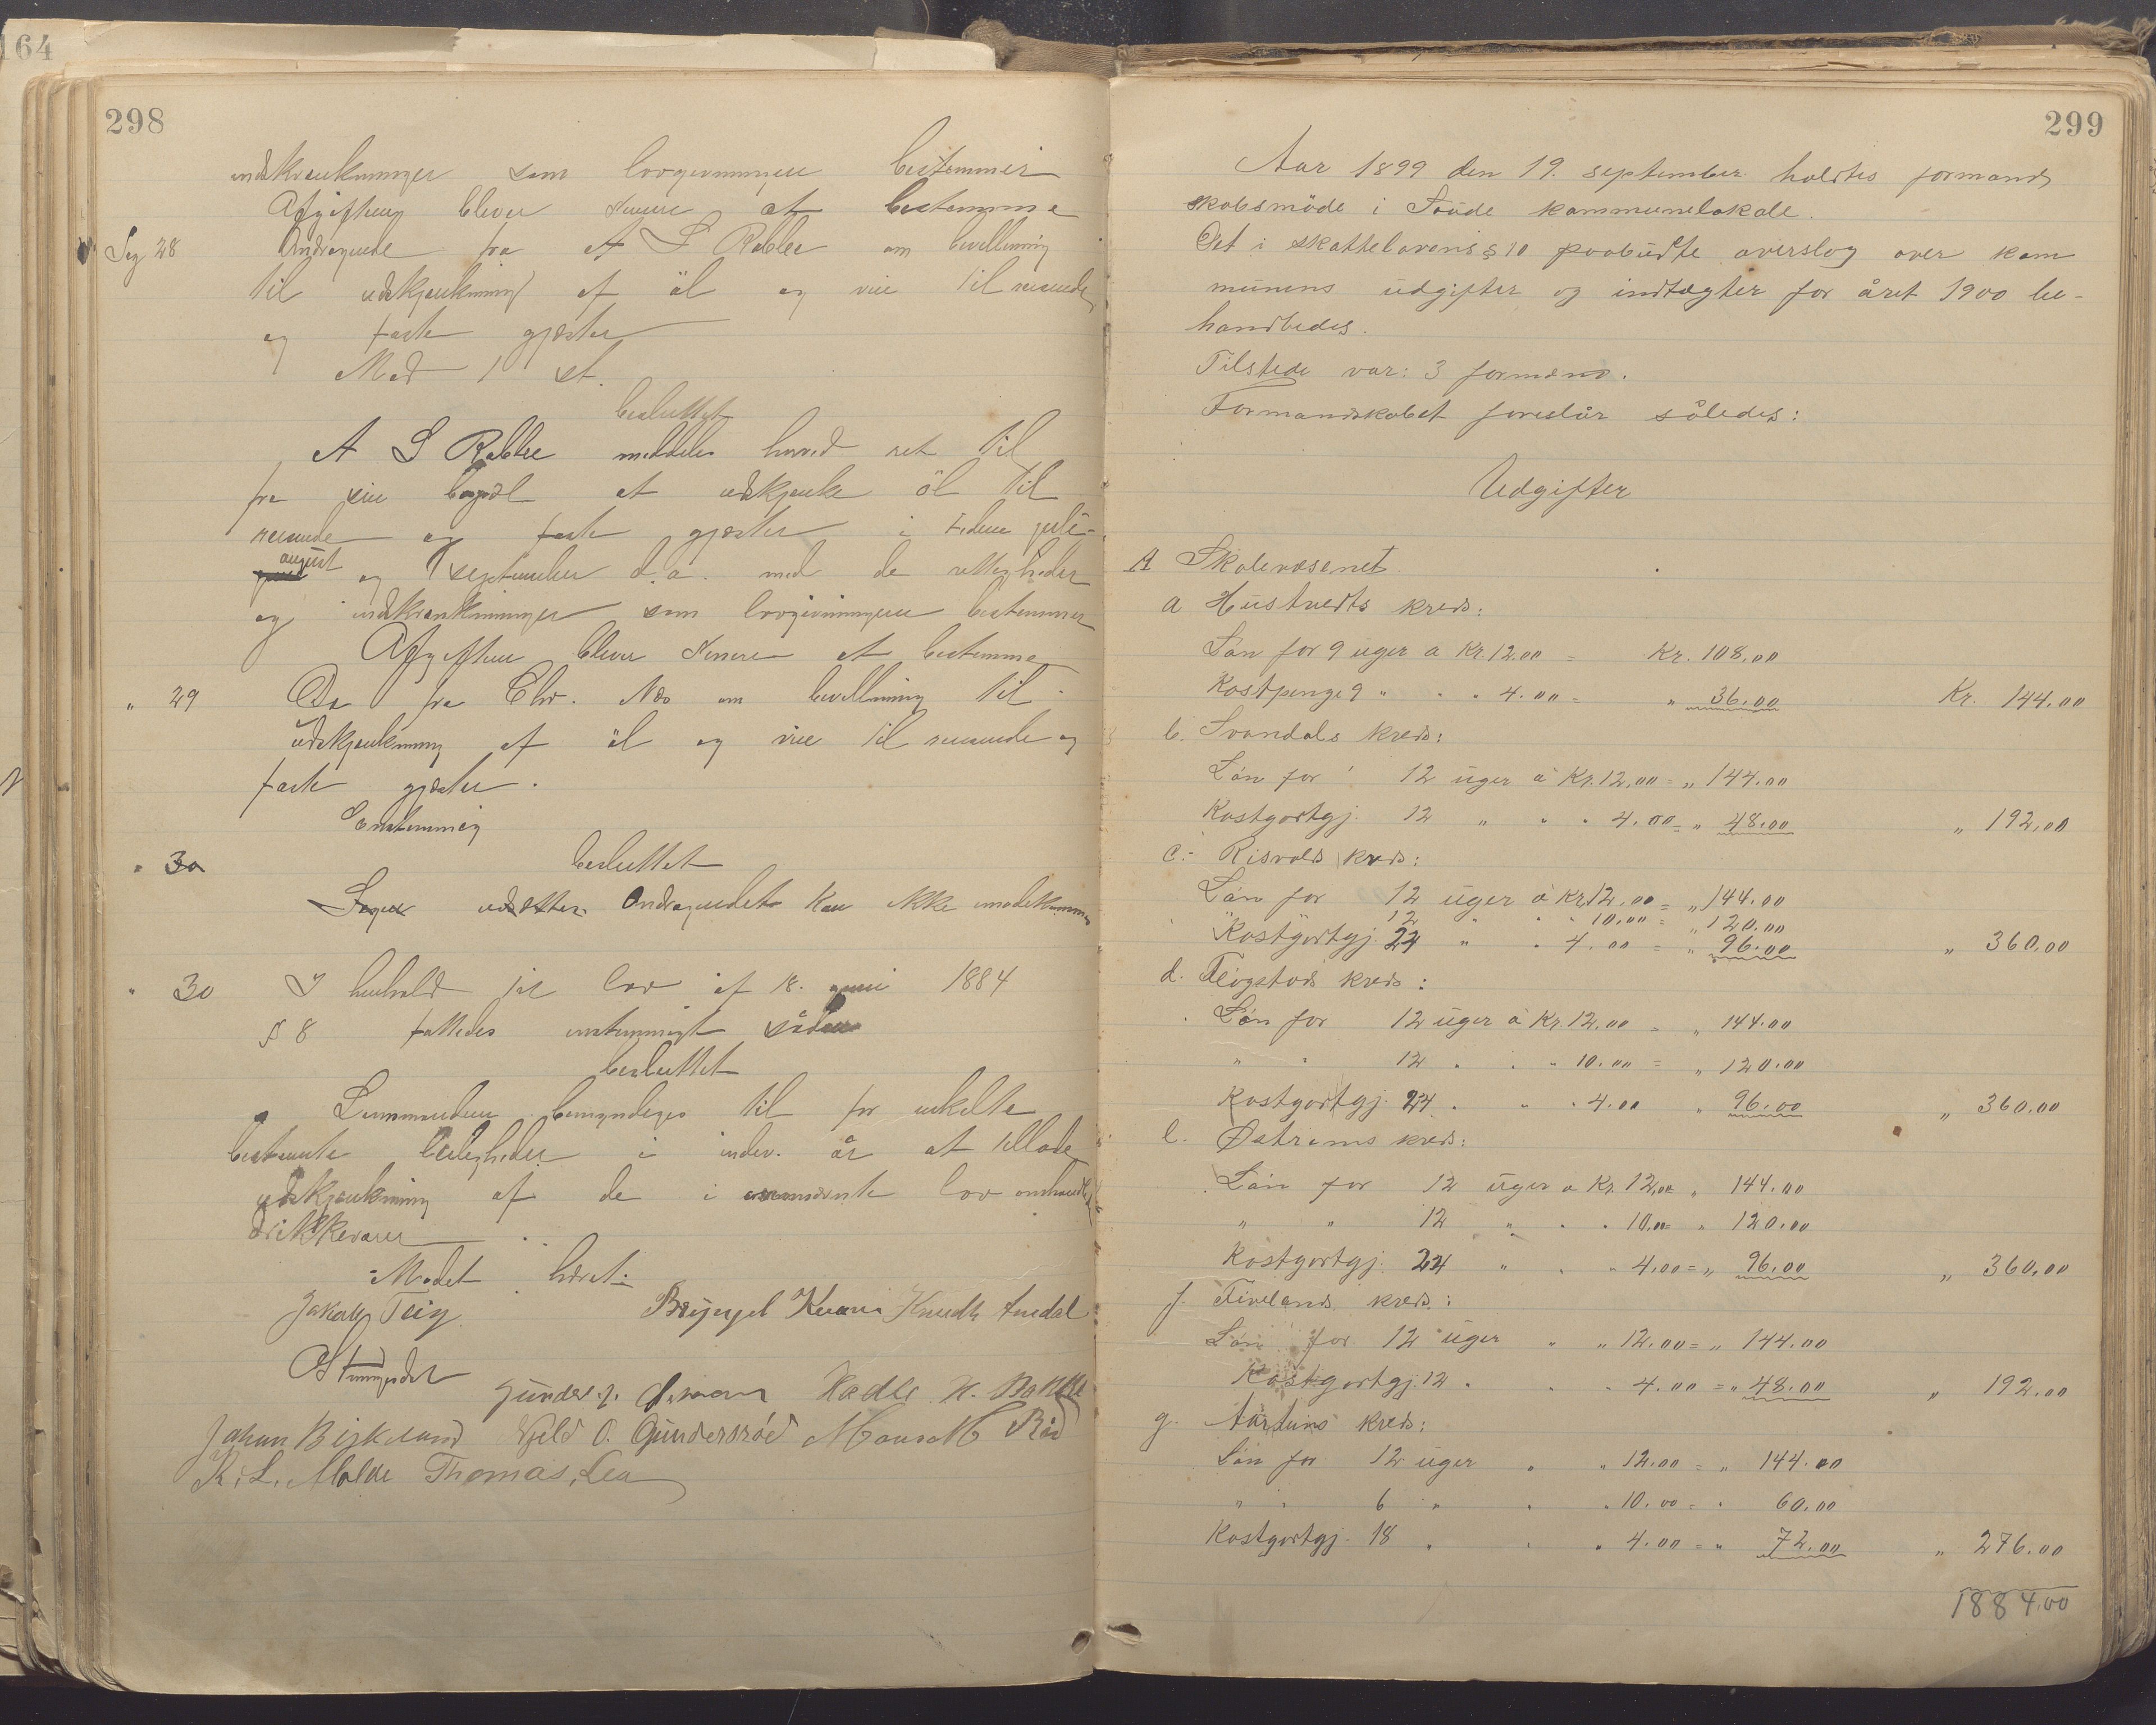 164
298
indskrænkninger som lovgivningen bestemmer
Afgiften bliver senere at bestemme
Sag 28 Andragende fra A S Rabbe om bevilling
til udskjænkning af öl og vin til reisende
og faste gjæster
Med 1 st.
besluttet
A S Rabbe meddeles herved ret til
fra sin bopæl at udskjænke öl til
reisende og faste gjæster i tiden juli-
august og september d.a. med de rettigheder
og indskrænkninger som lovgivningen bestemmer
Afgiften bliver senere at bestemme
" 29 Do fra Chr. Næs om bevilling til
udskjænkning af öl og vin til reisende og
faste gjæster.
Enstemmig
" 30 besluttet
Sagen udsættes. Andragendet kan ikke imødekommes
" 30 I henhold til lov af 18. juni 1884
§ 8 fattedes enstemmigt sådan
besluttet
Lensmanden bemyndiges til for enkelte
bestemte leiligheder i indev. år at tillade
udskjænkning af de i nævnte lov omhandlede
drikkevarer
Mødet hævet.
Jakob Teig Knudth Amdal
Gunder J. Hadle H. Bakke
Johan Birkeland Eyild O. Gundersröd Mons M Röd
K. L. Molde Thomas, Lea
299
Aar 1899 den 19. september holdtes formand
skabsmöde i Saude kommunelokale.
Det i skattelovens § 10 paabudte overslag over kom
munens udgifter og indtægter for året 1900 be-
handledes.
Tilstede var: 3 formænd.
Formandskabet foreslår således:
Udgifter
A Skolevæsenet
a Hustvedts kreds:
Lön for 9 uger a Kr. 12.00 = Kr. 108.00
Kostpenge 9 " " " 4.00 = " 36.00 Kr. 144.00
b. Svandals kreds:
Lön for 12 uger á Kr. 12,00 = " 144.00
Kostgortgj. 12 " " " 4.00 = " 48.00 " 192,00
c. Risvolds kreds:
Lön for 12 uger á Kr. 12.00 = " 144.00
12 " " " 10.00 = " 120.00
Kostgortgj. 24 " " 4.00 = " 96.00 " 360.00
d. Flögstads kreds:
Lön for 12 uger á Kr. 12.00 = " 144.00
" " 12 " " " 10.00 = " 120.00
Kostgortgj. 24 " " " 4.00 " 96.00 " 360.00
e. Østreims kreds:
Lön for 12 uger a Kr. 12,00 " 144.00
" " 12 " " " 10.00 " 120.00
Kostgortgj. 24 " " " 4.00 = " 96.00 " 360.00
f. Fivelands kreds:
Lön for 12 uger " " 12.00 = " 144.00
Kostgortgj. 12 " " " 4.00 = " 48.00 " 192.00
g. Aartuns kreds:
Lön for 12 uger " " 12.00 = " 144.00
" " 6 " " " 10.00 = " 60.00
Kostgortgj. 18 " " " 4.00 = " 72.00 " 276.00
1884.00